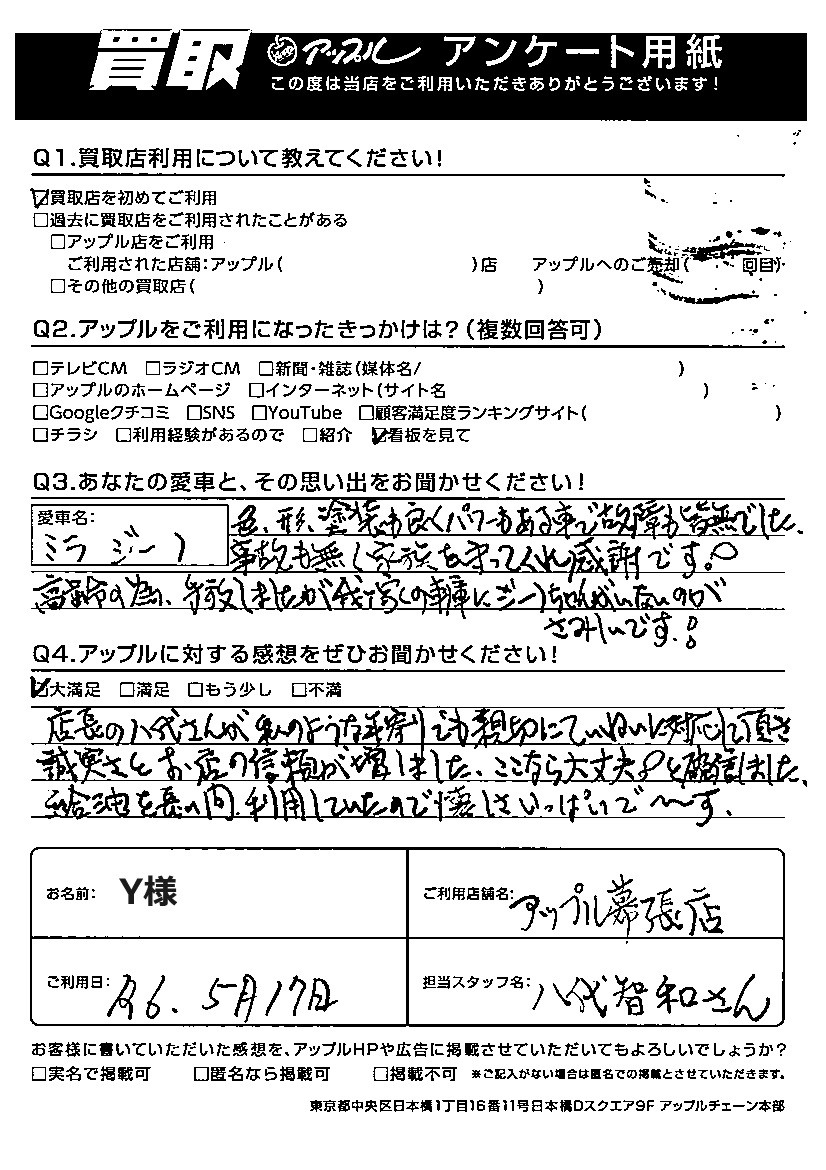 買取 アップル アンケート用紙
この度は当店をご利用いただきありがとうございます!
Q1.買取店利用について教えてください!
☑買取店を初めてご利用
□過去に買取店をご利用されたことがある
□アップル店をご利用
ご利用された店舗:アップル( )店 アップルへのご売却( 回目)
□その他の買取店( )
Q2.アップルをご利用になったきっかけは?(複数回答可)
□テレビCM □ラジオCM □新聞・雑誌(媒体名/ )
□アップルのホームページ □インターネット(サイト名 )
□Googleクチコミ □SNS □YouTube □顧客満足度ランキングサイト( )
□チラシ □利用経験があるので □紹介 ☑看板を見て
Q3.あなたの愛車と、その思い出をお聞かせください!
愛車名:
ミラ ジーノ
色、形、塗装も良くパワーもある車で故障も皆無でした、
事故も無く家族を守ってくれ感謝です。
高齢の為、手放しましたが我が家の車庫にジーノちゃんがいないのが
さみしいです。!
Q4.アップルに対する感想をぜひお聞かせください!
☑大満足 □満足 □もう少し □不満
店長の八代さんが私のような年寄りでも親切にていねいに対応して頂き
誠実さとお店の信頼が増しました、ここなら大丈夫と確信しました、
給油を長い間、利用していたので懐しさいっぱいで〜す。
お名前: Y様
ご利用店舗名: アップル幕張店
ご利用日: R6. 5月17日
担当スタッフ名: 八代智和さん
お客様に書いていただいた感想を、アップルHPや広告に掲載させていただいてもよろしいでしょうか?
□実名で掲載可 □匿名なら掲載可 □掲載不可 ※ご記入がない場合は匿名での掲載とさせていただきます。
東京都中央区日本橋1丁目16番11号日本橋Dスクエア9F アップルチェーン本部